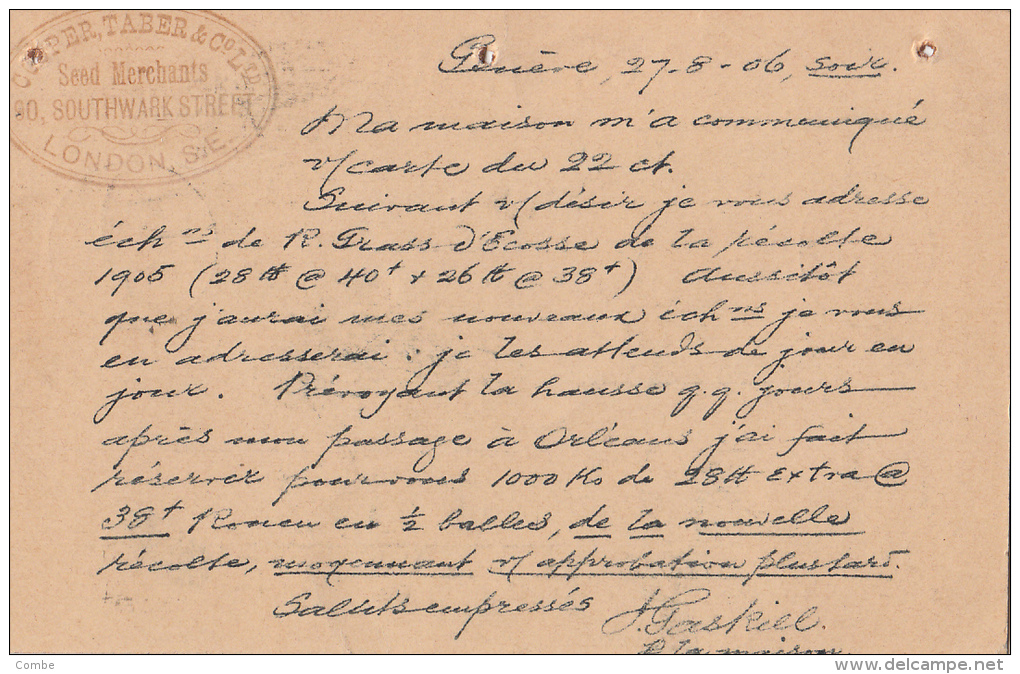 COOPER, TABER & Co. Ltd.
Seed Merchants
90, SOUTHWARK STREET
LONDON, S.E.
Genève, 27-8-06, soir.
Ma maison m'a communiqué
v/ carte du 22 ct.
Suivant v/ désir je vous adresse
échns de R. Grass d'Ecosse de la récolte
1905 (28 tt @ 40+ + 26 tt @ 38+) Aussitôt
que j'aurai mes nouveaux échns je vous
en adresserai; je les attends de jour en
jour. Prévoyant la hausse q.q. jours
après mon passage à Orléans j'ai fait
réserver pour vous 1000 Ko de 28 tt Extra @
38+ Rouen en ½ balles, de la nouvelle
récolte, moyennant v/ approbation plus tard.
Saluts empressés
J. Gaskill.
P. la maison
Combe
© delcampe.net